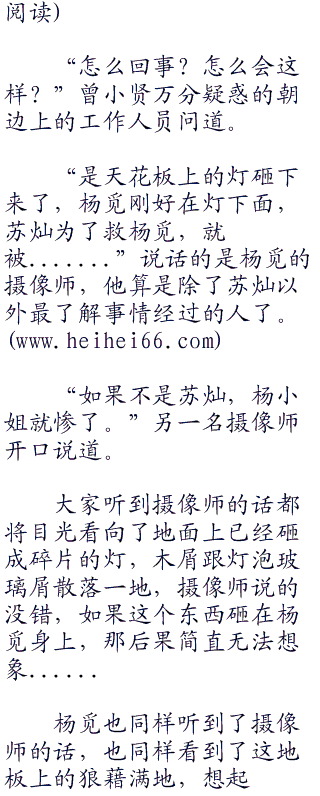 阅读)
“怎么回事？怎么会这
样？”曾小贤万分疑惑的朝
边上的工作人员问道。
“是天花板上的灯砸下
来了，杨觅刚好在灯下面，
苏灿为了救杨觅，就
被.......”说话的是杨觅的
摄像师，他算是除了苏灿以
外最了解事情经过的人了。
(www.heihei66.com)
“如果不是苏灿，杨小
姐就惨了。”另一名摄像师
开口说道。
大家听到摄像师的话都
将目光看向了地面上已经砸
成碎片的灯，木屑跟灯泡玻
璃屑散落一地，摄像师说的
没错，如果这个东西砸在杨
觅身上，那后果简直无法想
象......
杨觅也同样听到了摄像
师的话，也同样看到了这地
板上的狼藉满地，想起